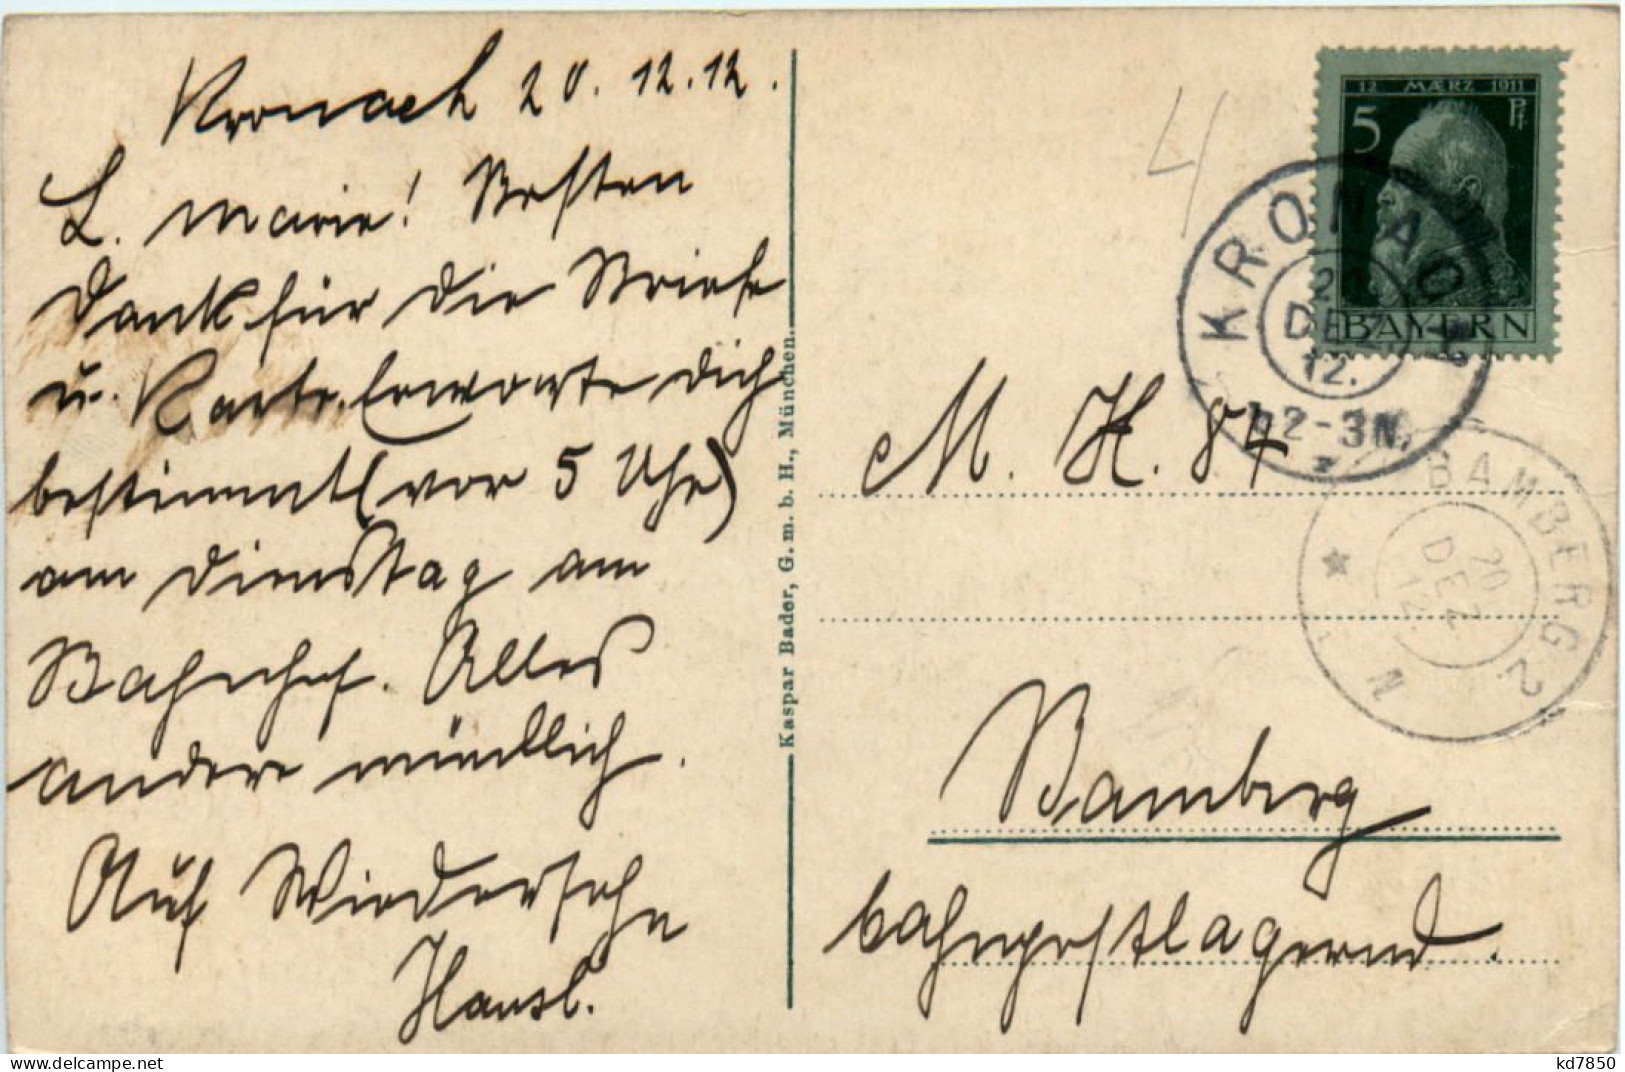 Kronach 20.12.12.
L. Marie! Besten
Dank für die Briefe
u. Karte. Erwarte dich
bestimmt (vor 5 Uhr)
am Dienstag am
Bahnhof. Alles
andere mündlich.
Auf Wiedersehn
Hansl.
Kaspar Bader, G. m. b. H., München.
12 MÆRZ 1911
5 Pf
BAYERN
KRONACH
20
DEZ
12.
2-3N.
BAMBERG 2
20
DEZ
12
N
4
M. H. 84
Bamberg
bahnpostlagernd.
kd7850